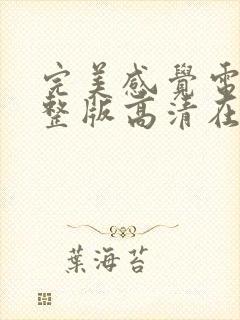 完美感覺電
整版高清在
葉海苔